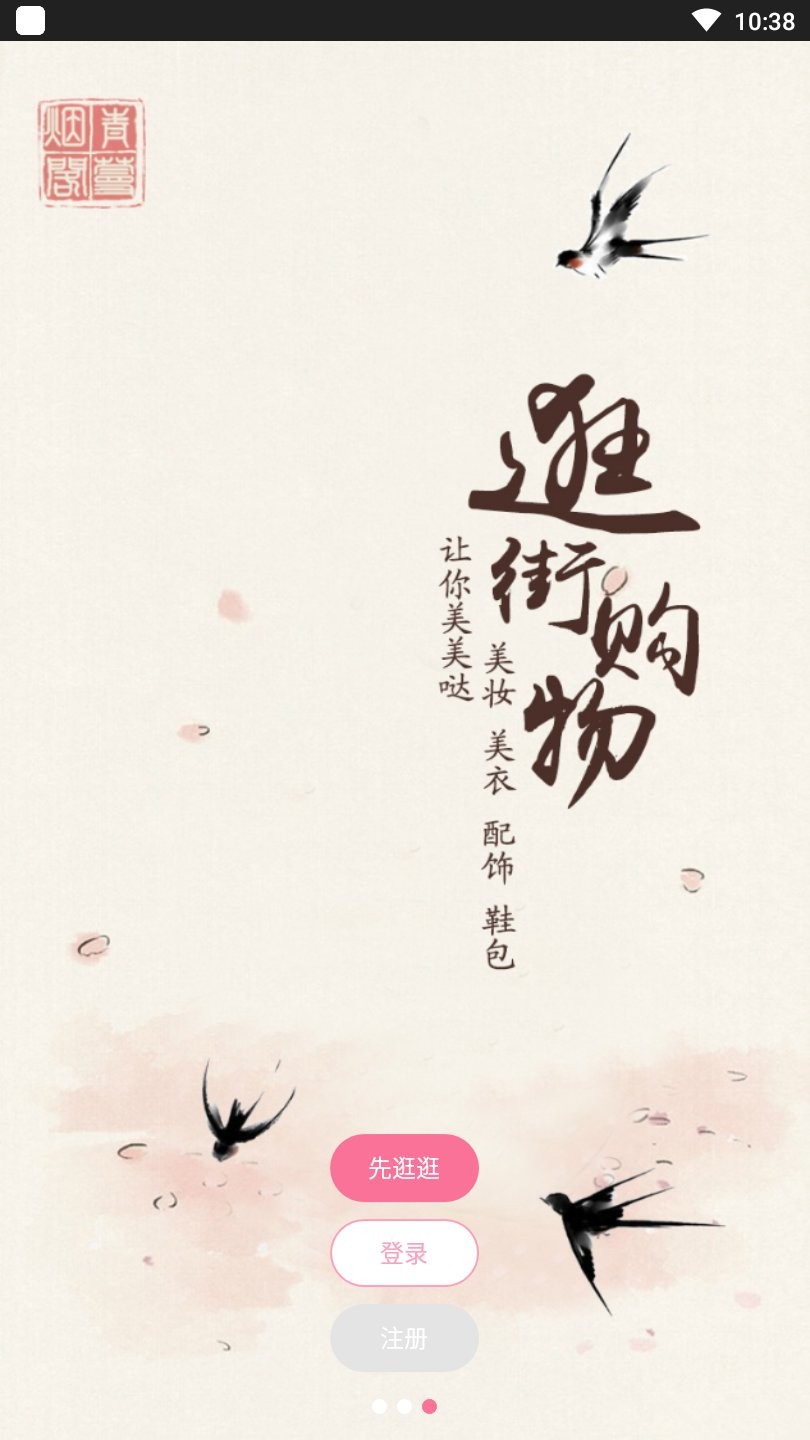 10:38
青夔烟閣
逛街购物
美妆 美衣 配饰 鞋包
让你美美哒
先逛逛
登录
注册